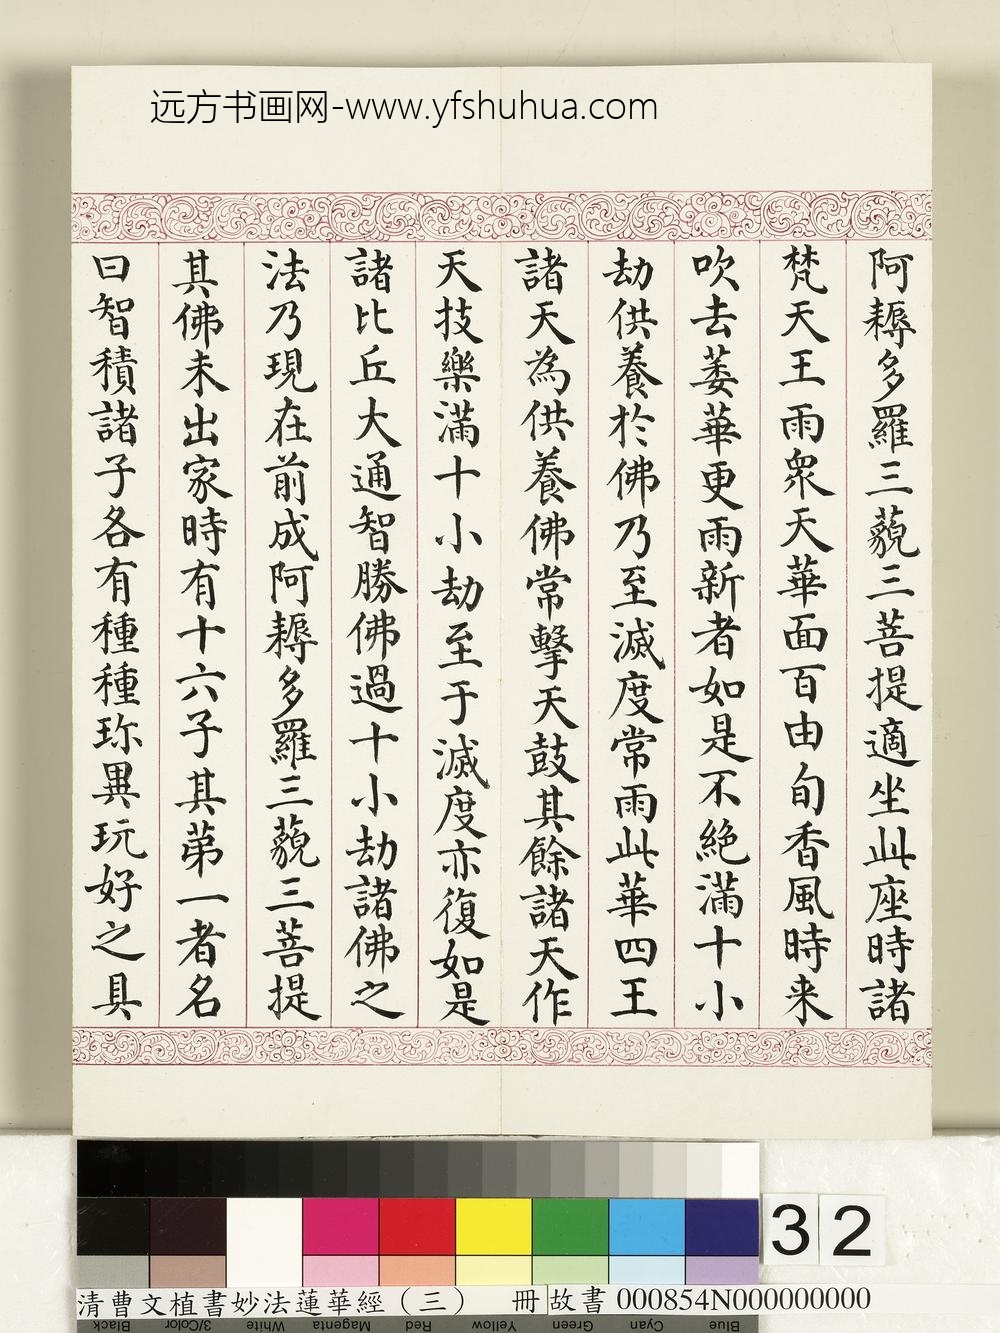 远方书画网-www.yfshuhua.com
阿耨多羅三藐三菩提適坐此座時諸
梵天王雨眾天華面百由旬香風時来
吹去萎華更雨新者如是不絶滿十小
劫供養於佛乃至滅度常雨此華四王
諸天為供養佛常擊天鼓其餘諸天作
天技樂滿十小劫至于滅度亦復如是
諸比丘大通智勝佛過十小劫諸佛之
法乃現在前成阿耨多羅三藐三菩提
其佛未出家時有十六子其第一者名
曰智積諸子各有種種珎異玩好之具
32
清曹文植書妙法蓮華經（三） 冊 故書 000854N000000000
Black 3/Color White Magenta Red Yellow Green Cyan Blue